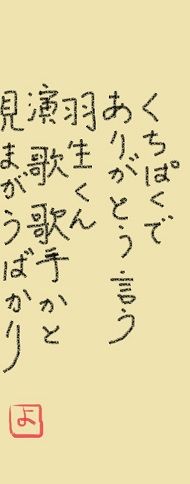 くちぱくで
ありがとう言う
羽生くん
演歌歌手かと
見まがうばかり
よ